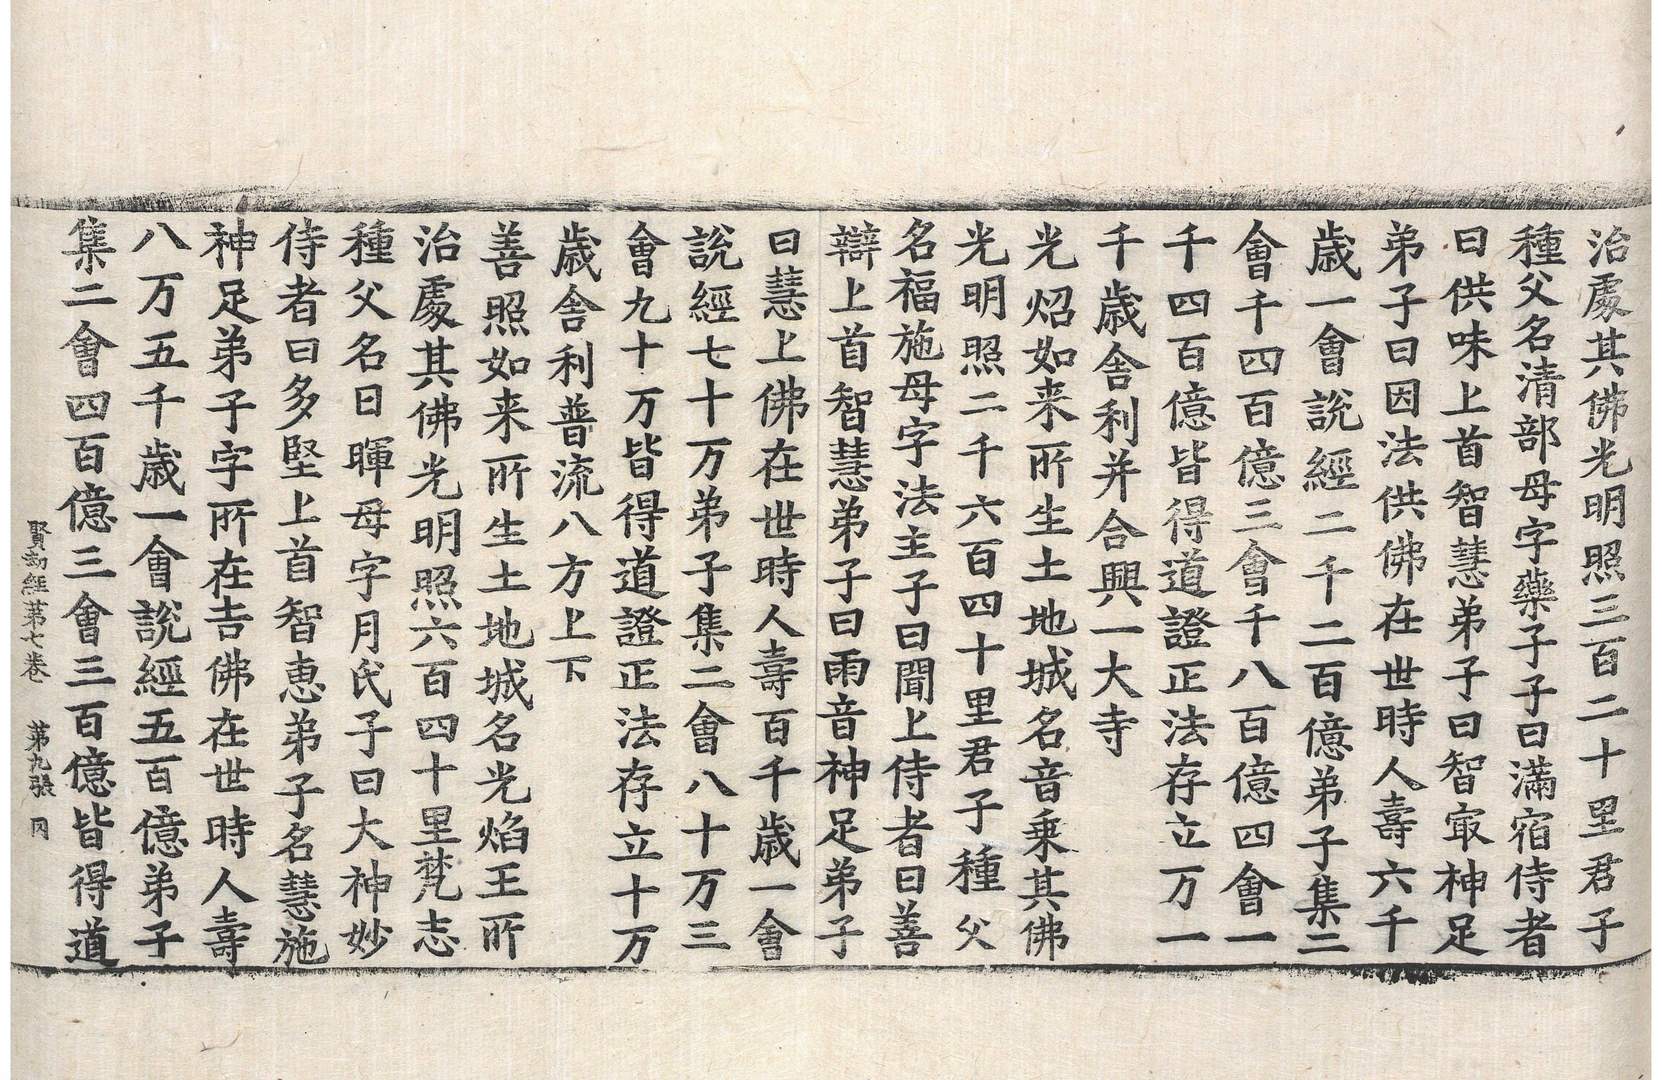 治處其佛光明照三百二十里君子
種父名清部母字藥子子曰滿宿侍者
曰供味上首智慧弟子曰智㝡神足
弟子曰因法供佛在世時人壽六千
歲一會說經二千二百億弟子集二
會千四百億三會千八百億四會一
千四百億皆得道證正法存立万一
千歲舍利并合興一大寺
光炤如来所生土地城名音乗其佛
光明照二千六百四十里君子種父
名福施母字法主子曰聞上侍者曰善
辯上首智慧弟子曰雨音神足弟子
曰慧上佛在世時人壽百千歲一會
說經七十万弟子集二會八十万三
會九十万皆得道證正法存立十万
歲舍利普流八方上下
善照如来所生土地城名光焰王所
治處其佛光明照六百四十里梵志
種父名日暉母字月氏子曰大神妙
侍者曰多堅上首智惠弟子名慧施
神足弟子字所在吉佛在世時人壽
八万五千歲一會說經五百億弟子
集二會四百億三會三百億皆得道
賢劫經苐七卷 苐九張 冈